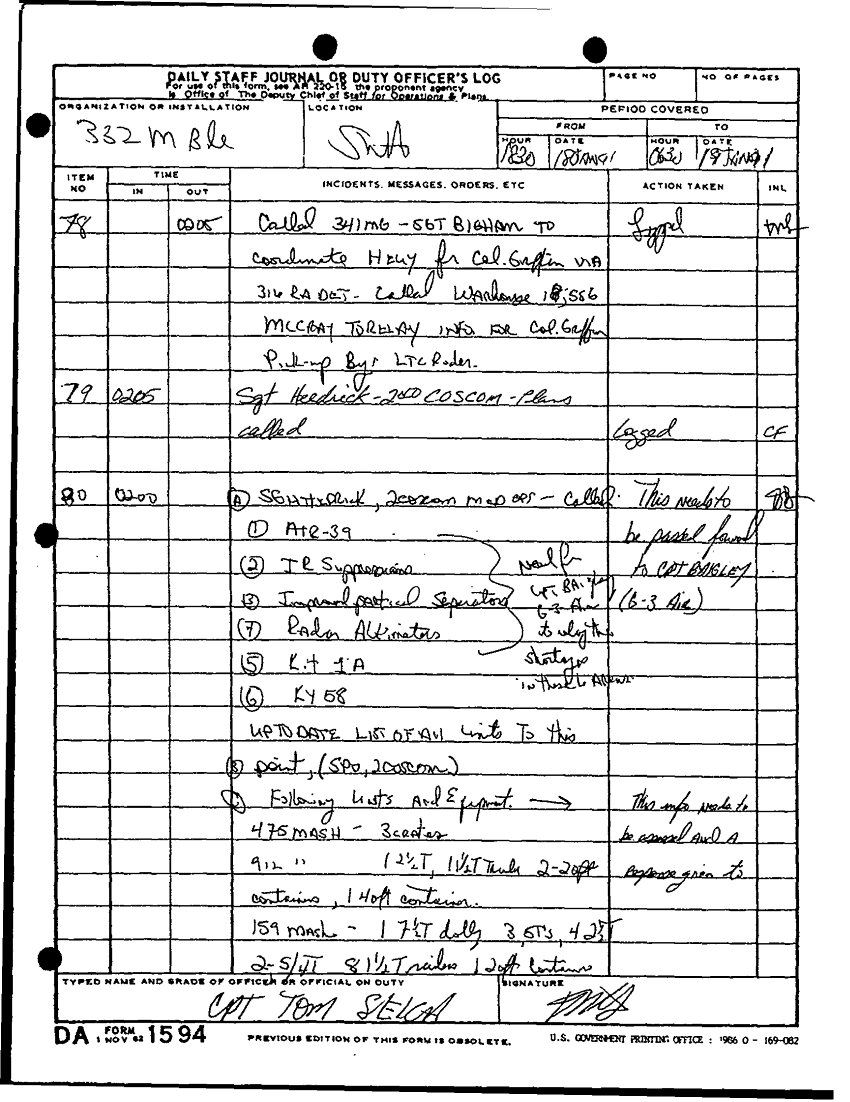 DAILY STAFF JOURNAL OR DUTY OFFICER'S LOG
For use of this form, see AR 220-15 the proponent agency
is Office of The Deputy Chief of Staff for Operations & Plans
PAGE NO
NO OF PAGES
ORGANIZATION OR INSTALLATION
332 M Bde
LOCATION
PERIOD COVERED
FROM
TO
HOUR
1830
DATE
18 JAN 91
HOUR
0630
DATE
19 JAN 91
ITEM NO
TIME
IN
OUT
INCIDENTS, MESSAGES, ORDERS, ETC
ACTION TAKEN
INL
78 0205 Called 341 MG - SGT BIGHAM TO
coordinate Huey for Col. Griffin VIA
316 RA DET - Called Warehouse
MCCRAY TO RELAY INFO FOR Col. Griffin
Pick-up By LTC Rader.
79 0205 Sgt Hedrick - 2nd COSCOM - Plans
called Logged CF
80 0200 (A) , 2COSCOM MCD OPS - Called. This needs to
(1) -39 be passed forward
(2) IR Suppressions need for to CPT BAIGLEY
(3) Improved partical Separators G-3 Air (G-3 Air)
(7) Radar Altimators to why the
(5) Kit 1A shortages
(6) KY 58 in these
UP TO DATE LIST OF All units To this
(B) point, (SPO, 2COSCOM)
Following Units And Equipment. → This info needs to
475 MASH - 3 crates be assessed and A
912 " 1 2½T, 1 1½T Trailer 2-20ft response given to
containers, 1 40ft container.
159 MASH - 1 7½T dolly 3, 5T's, 4 2½T
2-5/4T 8 1½T Trailers 1 20ft Containers
TYPED NAME AND GRADE OF OFFICER OR OFFICIAL ON DUTY
CPT TOM
SIGNATURE
DA FORM 1594
1 NOV 62
PREVIOUS EDITION OF THIS FORM IS OBSOLETE.
U.S. GOVERNMENT PRINTING OFFICE : 1986 O - 169-082